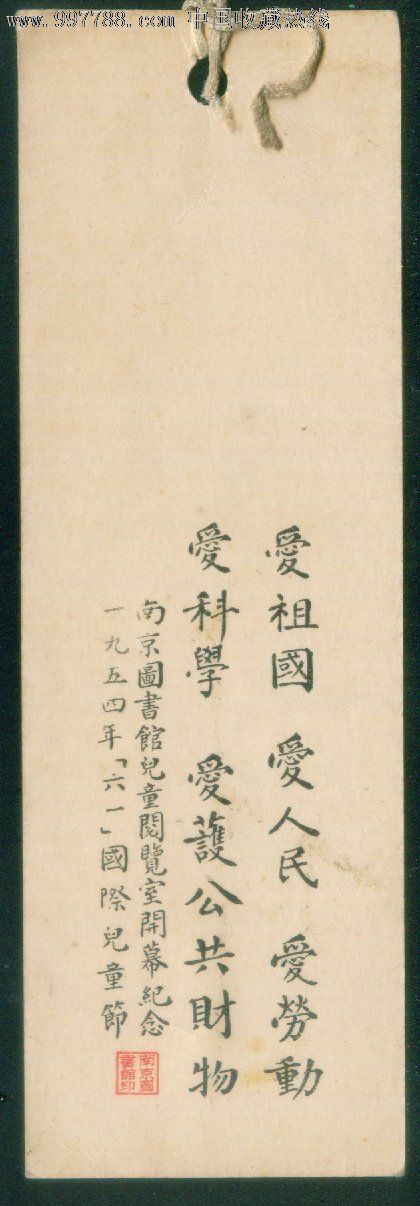 www.997788.com 中国收藏热线
愛祖國 愛人民 愛勞動
愛科學 愛護公共財物
南京圖書館兒童閱覽室開幕紀念
一九五四年「六一」國際兒童節
南京圖
書館印